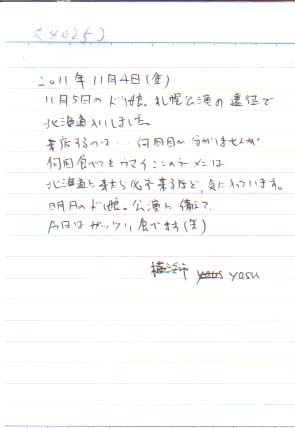 <4025>
2011年11月4日(金)
11月5日のド娘。札幌公演の遠征で
北海道入りしました。
来店するのは…何回目か分かりませんが
何回食べてもウマイここのラーメンは
北海道に来たら必ず来るほど、気に入っています。
明日のド娘。公演に備えて、
今日はガッツリ食べます(笑)
横浜市 yasu yasu